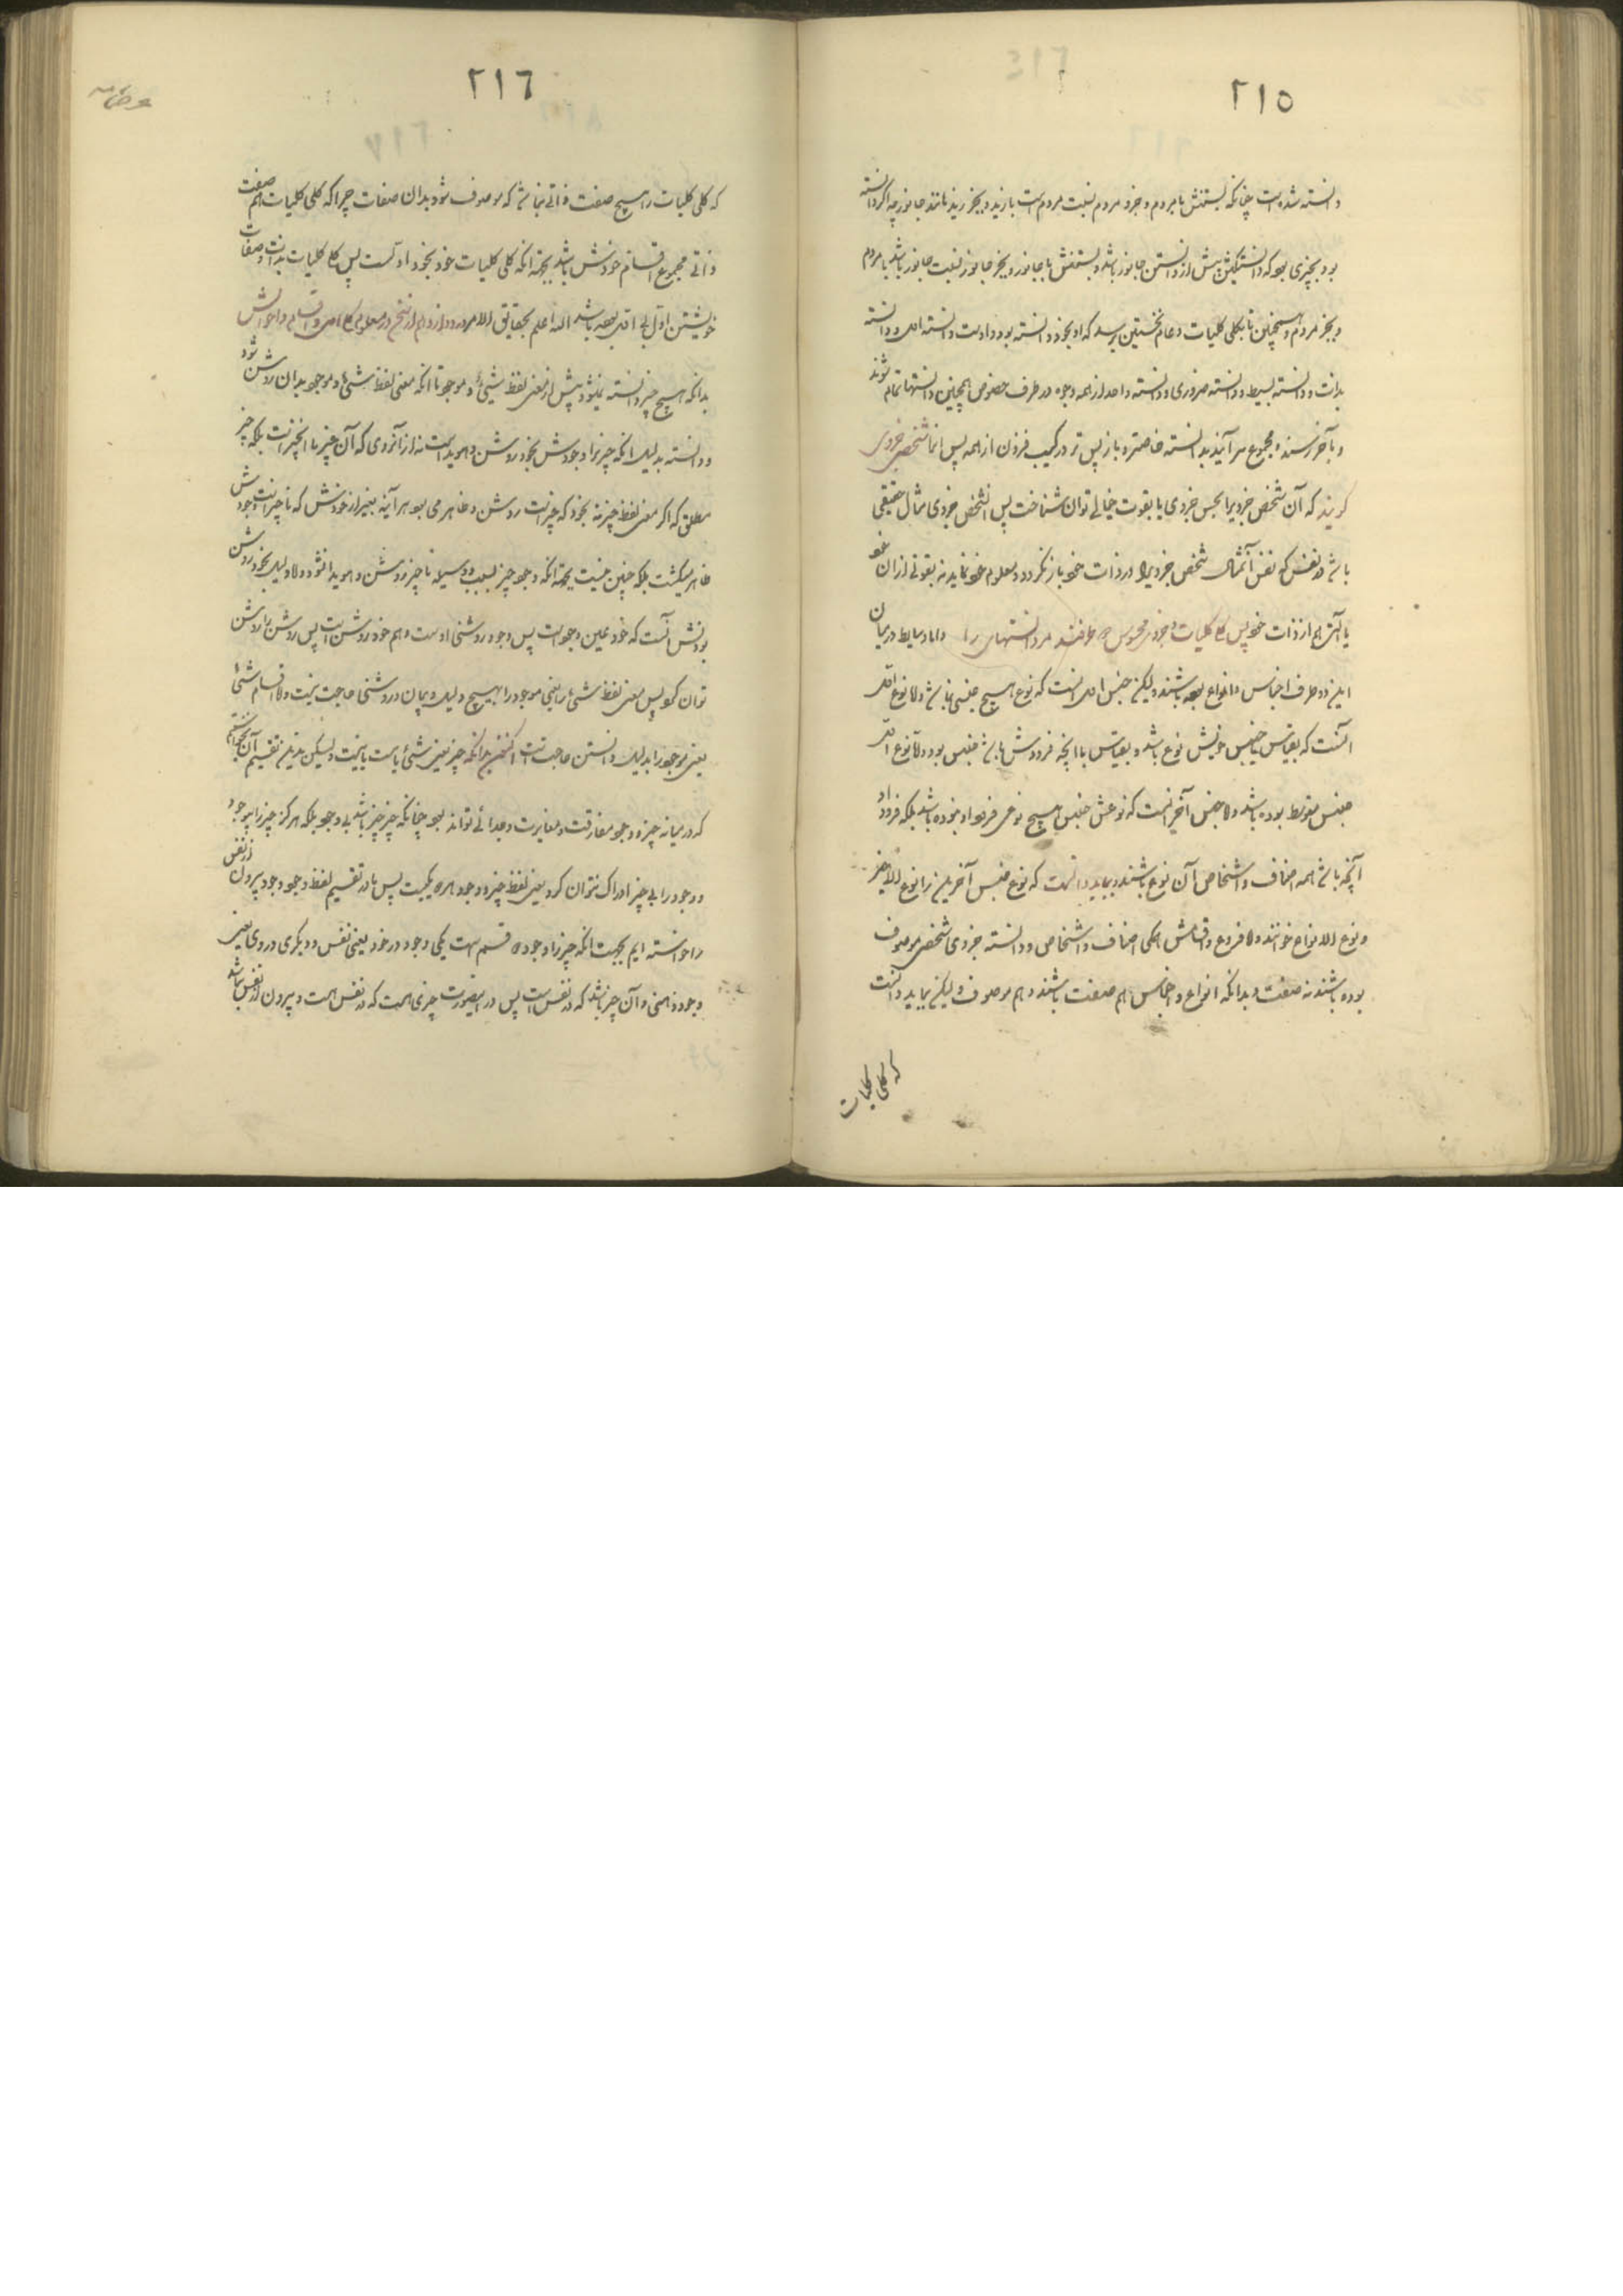 ٢١٥
دانسته شده است چنانکه نسبتش با مردم و جزو مردم نسبت مردم است با زید و بجز زید مانند جانور چه اگر دانسته
بود بچیزی بود که دانستگیش پیش از دانستن جانور باشد و نسبتش با جانور و بجز جانور نسبت جانور باشد با مردم
و بجز مردم و همچنین تا بکلی کلیات و عام نخستین برسد که او بخود دانسته بود و اوست دانسته اول و دانسته
بذات و دانسته بسیط و دانسته ضروری و دانسته واحد از همه وجوه در طرف خصوص همچنین دانستها تمام شوند
و بآخر رسند و مجموع سر آیند بدانسته خاصتر و باز پس تر در ترکیب فزون از همه پس آنها شخص جزوی
گویند که آن شخص جزویرا بحس جزوی یا بقوت خیالی توان شناخت پس الشخص جزوی مثال حقیقی
باشد در نفس که نفس آنمثال شخص جزویرا در ذات خود باز نگردد و معلوم خود نماید نه بقوتی از آن خود
یا آلتی هم از ذات خود پس کلی کلیات و جزو محسوس دو طرفند مر دانستهای را و اما وسایط در میان
این دو طرف اجناس و انواع بوده باشند ولیکن جنس اول آنست که نوع هیچ جنسی نباشد و لا نوع اول
آنست که بقیاس با جنس خویش نوع باشد و بقیاس با آنچه فرودش باشد جنس بود و لا نوع اول
جنس متوسط بوده باشد و لا جنس آخر آنست که نوعش جنس هیچ نوعی فرود او نبوده باشد بلکه فرود او
آنچه باشد همه اصناف و اشخاص آن نوع باشند و بباید دانست که نوع جنس آخرین را نوع الاخیر
و نوع الانواع خوانند و لا فروع و اقسامش همگی اصناف و اشخاص و دانسته جزوی شخص موصوف
بوده باشند نه صفت و بدانکه انواع و اجناس هم صفت باشند و هم موصوف ولیکن بباید دانست
که کلی کلیات
٢١٦
که کلی کلیات را هیچ صفت ذاتی نباشد که موصوف شود بدان صفات چرا که کلی کلیات هم صفت
ذاتی مجموع اقسام خودش باشد بجهة انکه کلی کلیات خود بخود اوست پس کلی کلیات بذات و صفات
خویشتن اول بی اول بوده باشد الله اعلم بحقایق الامور در دوازدهم از سخن در معلوم کلی اول و اقسام و احوالش
بدانکه هیچ چیز دانسته نمیشود پیش از معنی لفظ شیئ و موجود تا انکه معنی لفظ شیئ و موجود بدان روشن شود
و دانسته بدلیل انکه چیز را وجودش بخود روشن و هویداست نه از آنروی که آن چیز با انچیز است بلکه چیز
مطلق که اگر معنی لفظ چیز نه بخود که چیز است روشن و ظاهر می بود هر آینه بغیر از خودش که نا چیز است وجودش
ظاهر میگشت بلکه چنین نیست بجهة انکه وجود چیز بسبب و وسیله نا چیز روشن و هویدا نشود و لا دلیل بخود روشن
بودنش آنست که خود عین وجود است پس وجود روشنی اوست و هم خود روشن است پس روشن را روشن
توان کرد پس معنی لفظ شئ را یعنی موجود را بهیچ دلیل و بیان در روشنی حاجت نیست و لا اقسام شئ را
یعنی موجود را بدلیل دانستن حاجت است اکنون بدانکه چیز یعنی شئ یا هست یا نیست ولیکن بدین تقسیم آن نخواستیم
که در میانه چیز و وجود مفارقت و مغایرت و جدائی تواند بود چنانکه چیز چیز باشد بی وجود بلکه هرگز چیز را بی وجود
و وجود را بی چیز ادراک نتوان کرد یعنی لفظ چیز و وجود هر دو یکیست پس ما در تقسیم لفظ وجود وجود بیرون از نفس
را خواسته ایم بجهت انکه چیز را وجود دو قسم است یکی وجود در خود یعنی نفس و دیگری در وی یعنی
وجود ذهنی و آن چیز باشد که در نفس است پس در اینصورت چیزی هست که در نفس هست و بیرون از نفس نباشد